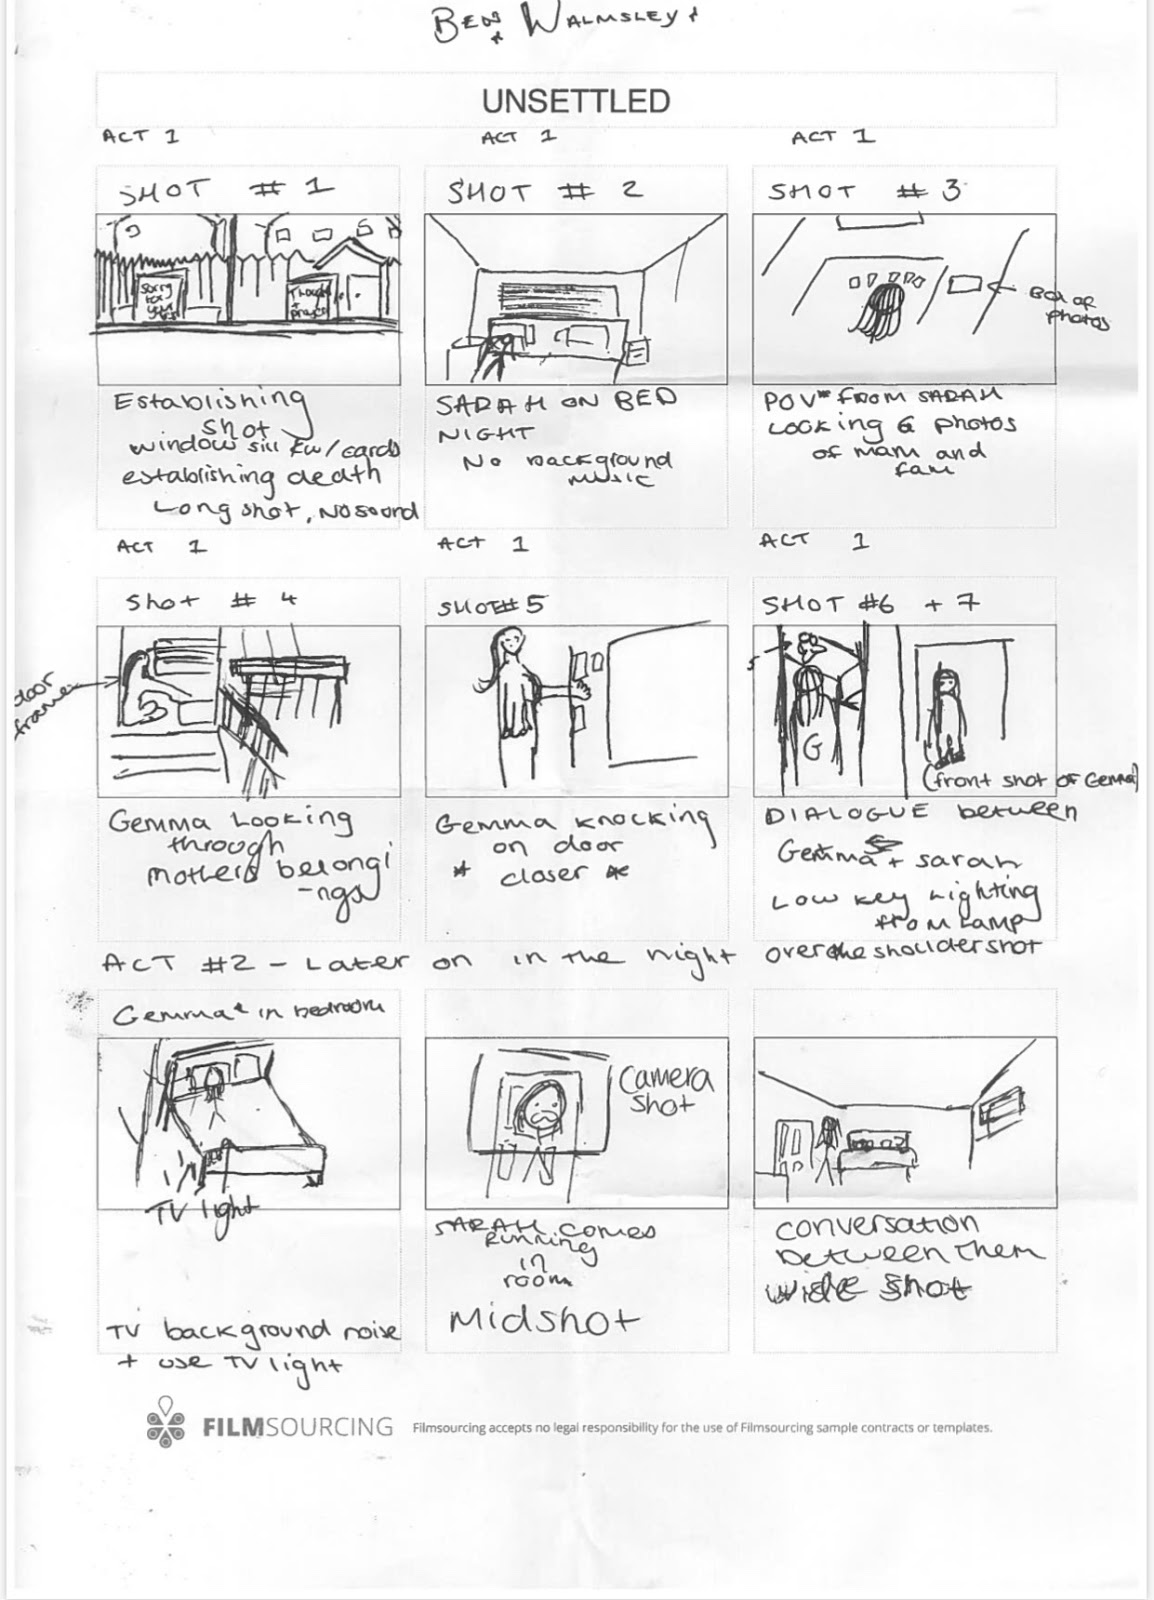 BEN WALMSLEY
UNSETTLED
ACT 1
ACT 1
ACT 1
SHOT # 1
SHOT # 2
SHOT # 3
Sorry
for
your
Thoughts
+
prayers
Box of
photos
Establishing
shot
window sill w/cards
establishing death
Long shot, No sound
SARAH ON BED
NIGHT
No background
music
POV FROM SARAH
Looking @ photos
of mam and
fam
ACT 1
ACT 1
ACT 1
Shot # 4
SHOT# 5
SHOT #6 + 7
door
frame
G
(front shot of Gemma)
Gemma Looking
through
mothers belongi
-ngs
Gemma knocking
on door
* closer *
DIALOGUE between
Gemma + sarah
Low key lighting
from Lamp
over the shoulder shot
ACT #2 - Later on in the night
Gemma in bedroom
TV light
camera
shot
TV background noise
+ use TV light
SARAH comes
running
in
room
Midshot
conversation
between them
wide shot
FILMSOURCING
Filmsourcing accepts no legal responsibility for the use of Filmsourcing sample contracts or templates.